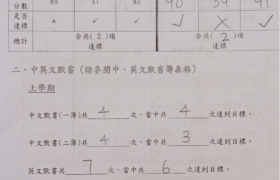 分數 90 39 91
是否達標 ✓ ✓ ✓ ✗ ✓
總計 合共( 2 )項達標 合共( 2 )項達標
二、中英文默書(請參閱中、英文默書簿表格)
上學期
中文默書(一簿)共 4 次，當中共 4 次達到目標。
中文默書(二簿)共 4 次，當中共 3 次達到目標。
英文默書共 7 次，當中共 6 次達到目標。